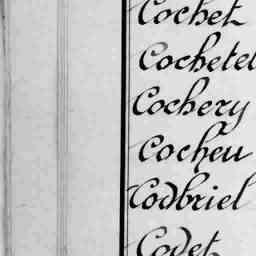 Cochet
Cochetel
Cochery
Cocheu
Codbriel
Codet